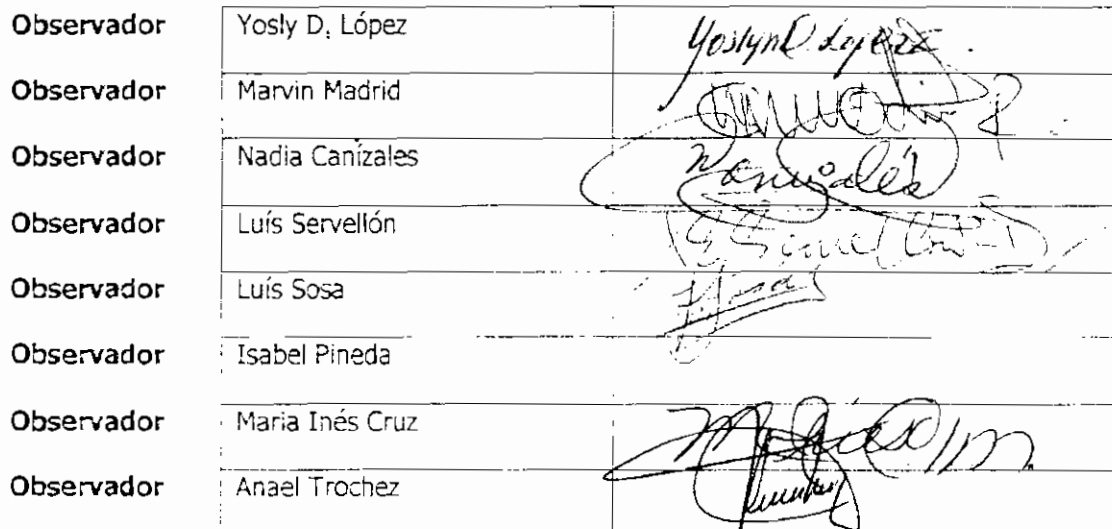 Observador Yosly D. López Yoslyn D. Lopez.
Observador Marvin Madrid
Observador Nadia Canízales
Observador Luís Servellón
Observador Luís Sosa
Observador Isabel Pineda
Observador Maria Inés Cruz
Observador Anael Trochez